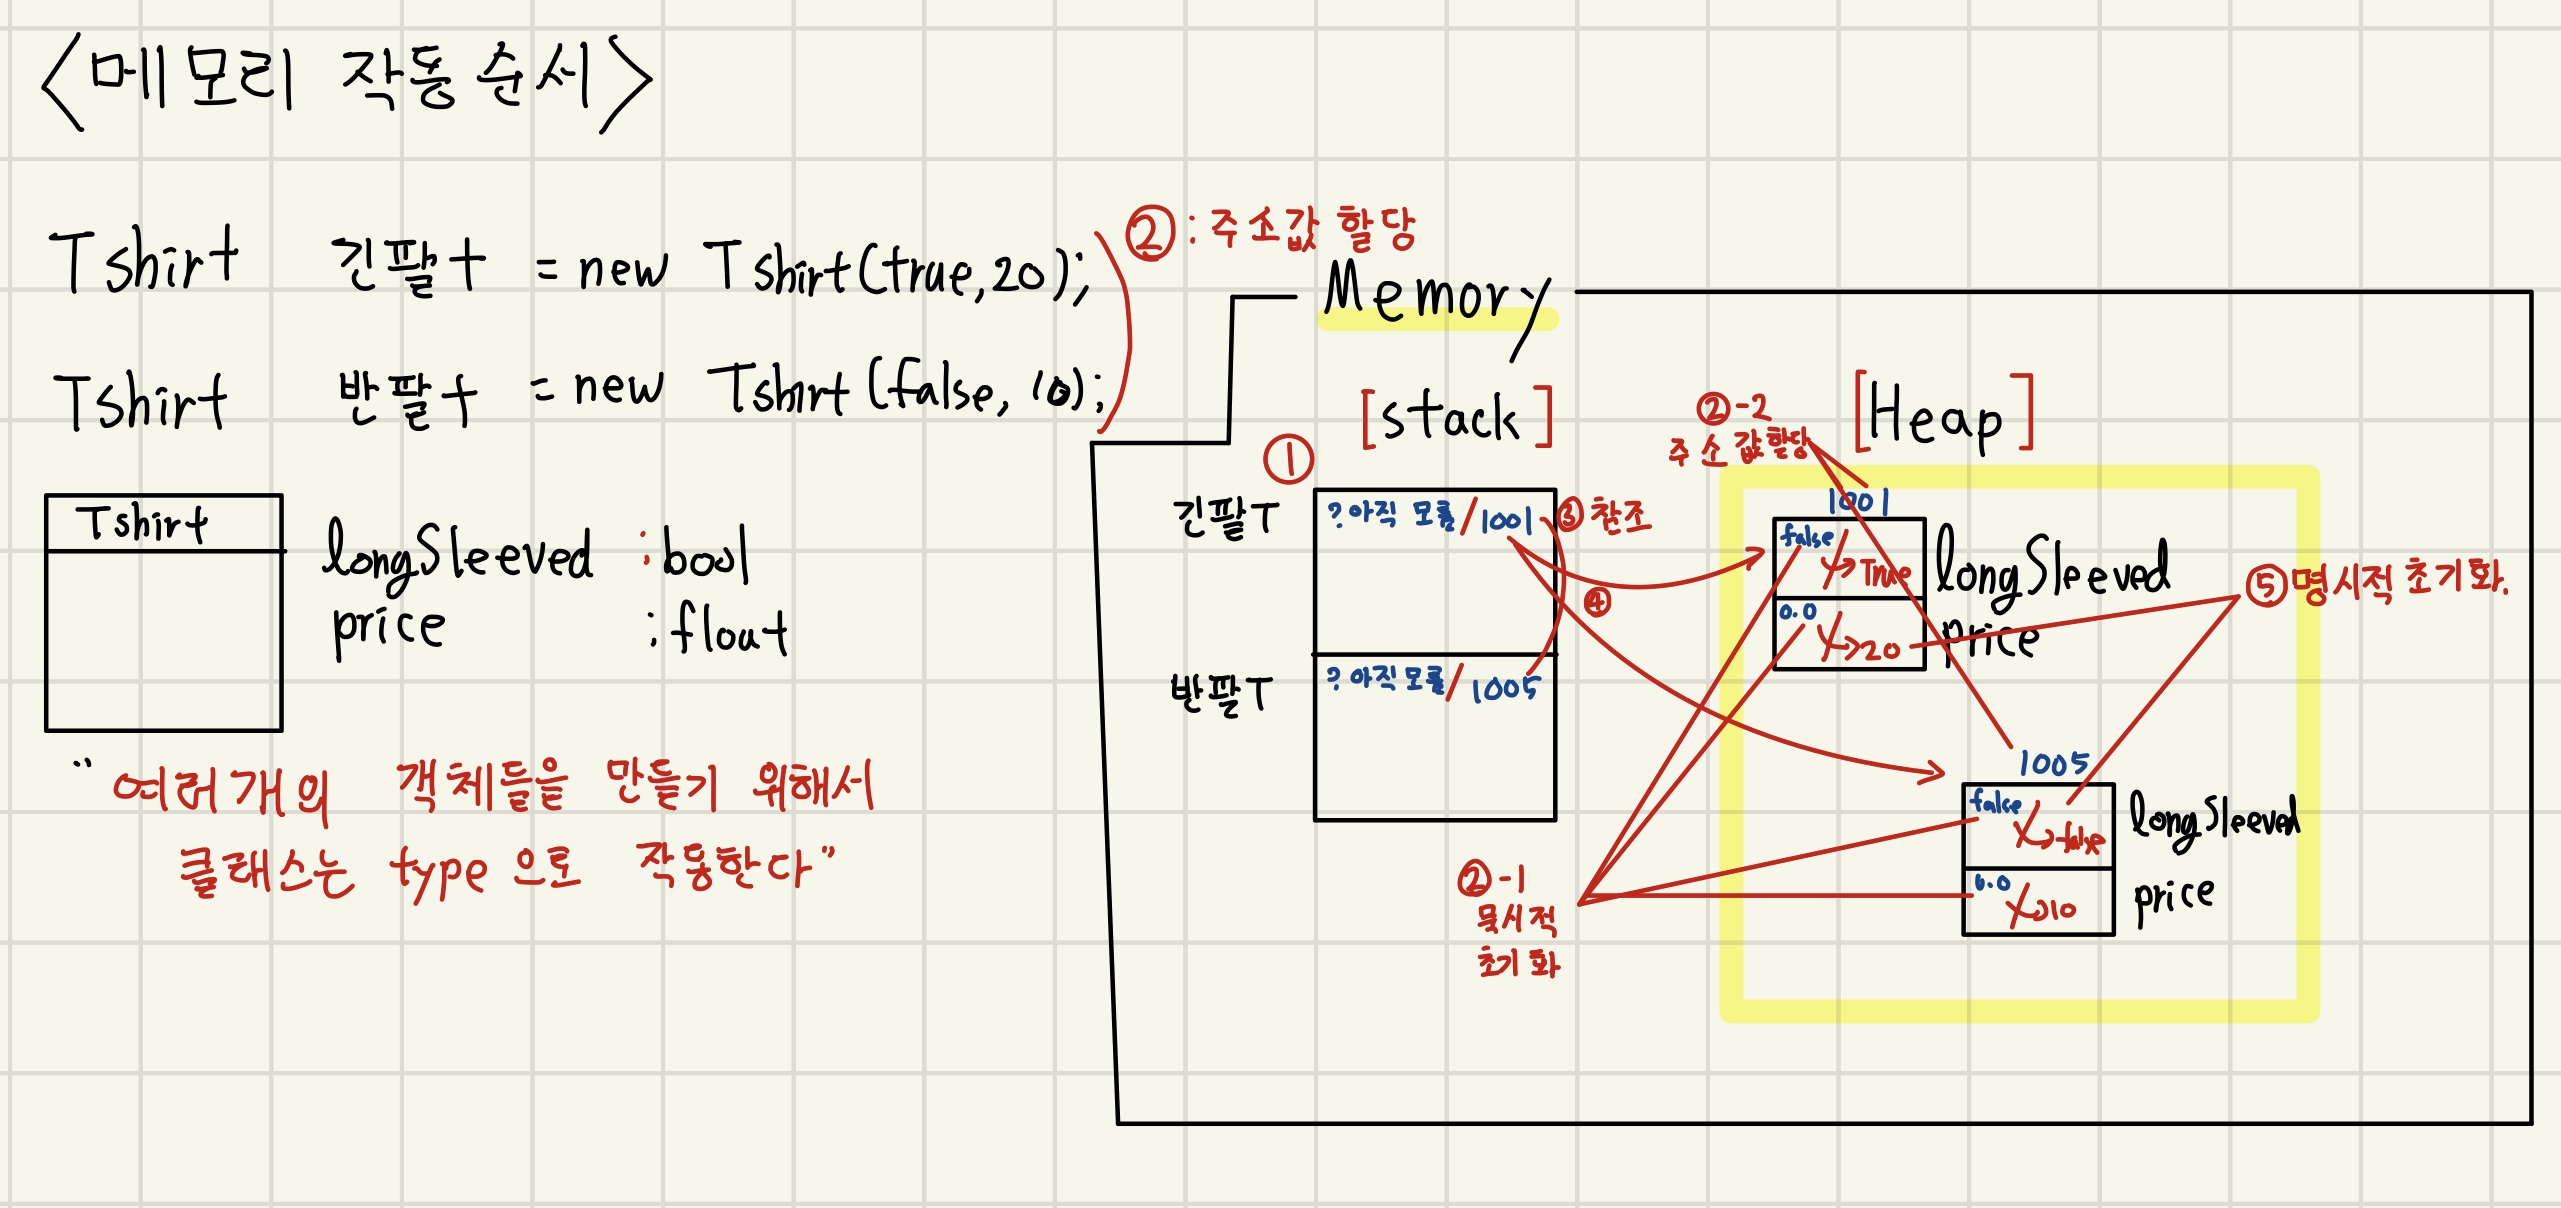 <메모리 작동 순서>
Tshirt 긴팔t = new Tshirt(true,20);
②:주소값 할당
Tshirt 반팔t = new Tshirt(false, 10);
Tshirt
longSleeved : bool
price : float
"여러개의 객체들을 만들기 위해서
클래스는 type으로 작동한다"
Memory
[stack]
①
긴팔T
? 아직 모름/1001
③참조
④
반팔T
? 아직모름/1005
②-1
묵시적
초기화
[Heap]
②-2
주소값할당
1001
false → True longSleeved
0.0 → 20 price
⑤명시적 초기화.
1005
false → false longSleeved
0.0 → 10 price